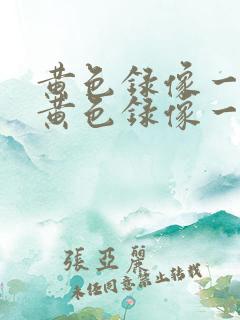 黄色録像一
黄色録像一
張亞麗
未任同意禁止转载